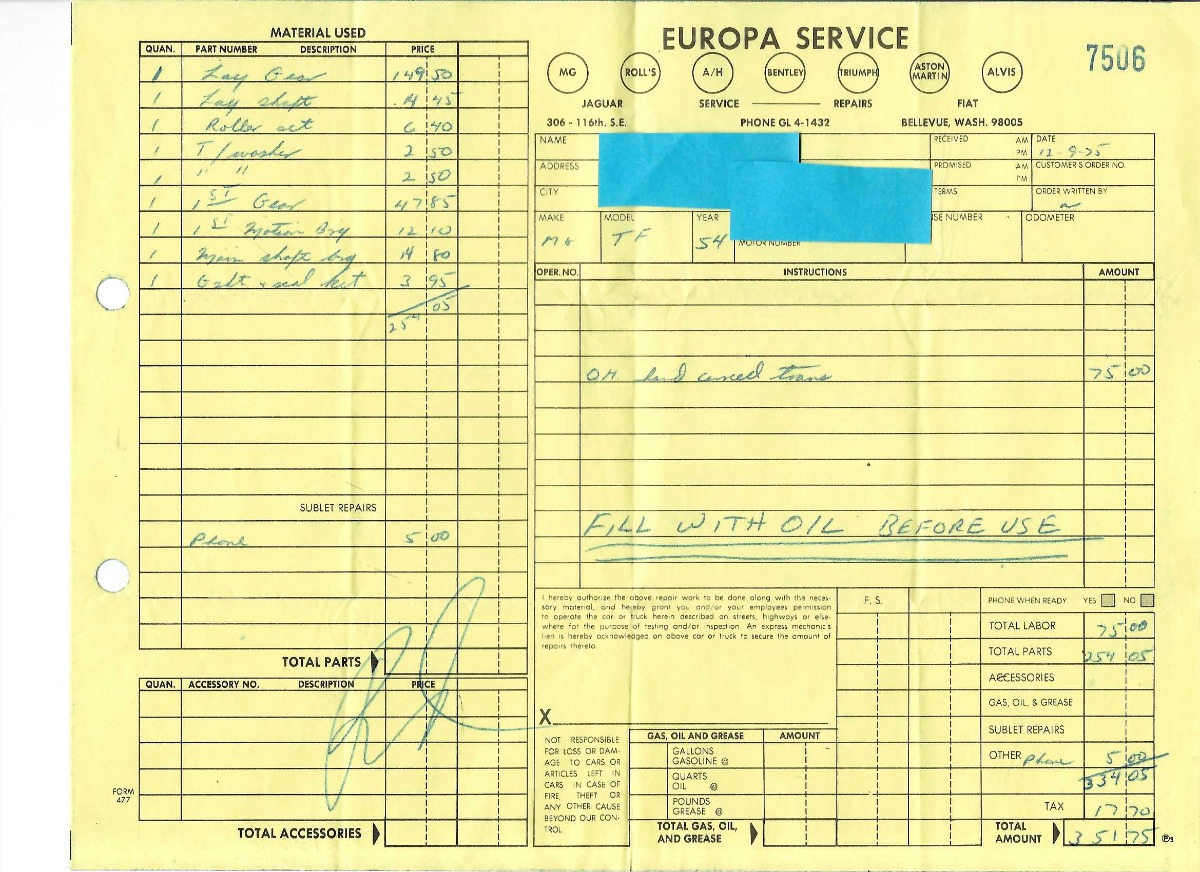 EUROPA SERVICE
7506
MG ROLL'S A/H BENTLEY TRIUMPH ASTON MARTIN ALVIS
JAGUAR SERVICE REPAIRS FIAT
306 - 116th. S.E. PHONE GL 4-1432 BELLEVUE, WASH. 98005
MATERIAL USED
QUAN. PART NUMBER DESCRIPTION PRICE
1 Lay Gear 149 50
1 Lay shaft 14 45
1 Roller set 6 40
1 T/washer 2 50
1 " " 2 50
1 1ST Gear 47 85
1 1ST Motion Brg 12 10
1 Main shaft brg 14 80
1 Gskt & seal kit 3 95
254 05
SUBLET REPAIRS
Phone 5 00
TOTAL PARTS
QUAN. ACCESSORY NO. DESCRIPTION PRICE
FORM
477
TOTAL ACCESSORIES
NAME
RECEIVED AM PM
DATE
12-9-75
ADDRESS
PROMISED AM PM
CUSTOMER'S ORDER NO.
CITY
TERMS
ORDER WRITTEN BY
MAKE MODEL YEAR SE NUMBER ODOMETER
MG TF 54
MOTOR NUMBER
OPER. NO. INSTRUCTIONS AMOUNT
O.H. hand trans 75 00
FILL WITH OIL BEFORE USE
I hereby authorize the above repair work to be done along with the neces-
sary material, and hereby grant you and/or your employees permission
to operate the car or truck herein described on streets, highways or else-
where for the purpose of testing and/or inspection. An express mechanic's
lien is hereby acknowledged on above car or truck to secure the amount of
repairs thereto.
X
NOT RESPONSIBLE
FOR LOSS OR DAM-
AGE TO CARS OR
ARTICLES LEFT IN
CARS IN CASE OF
FIRE, THEFT OR
ANY OTHER CAUSE
BEYOND OUR CON-
TROL.
GAS, OIL AND GREASE AMOUNT
GALLONS
GASOLINE @
QUARTS
OIL @
POUNDS
GREASE @
TOTAL GAS, OIL,
AND GREASE
F. S.
PHONE WHEN READY YES NO
TOTAL LABOR 75 00
TOTAL PARTS 254 05
ACCESSORIES
GAS, OIL, & GREASE
SUBLET REPAIRS
OTHER Phone 5 00
334 05
TAX 17 70
TOTAL
AMOUNT 351 75